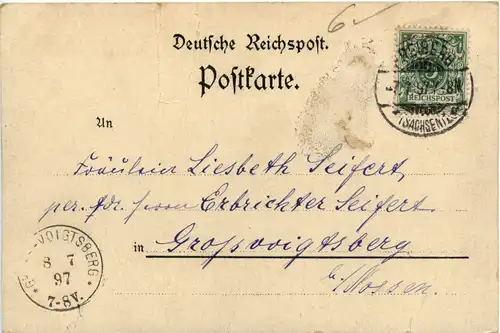 6
Deutsche Reichspost.
Postkarte.
FREIBERG
7 97 8N
(SACHSEN)
REICHSPOST
An
Fräulein Liesbeth Seifert,
per. Adr. Herrn Erbrichter Seifert,
in Großvoigtsberg
b/Nossen.
VOIGTSBERG
8 7
97
7-8V.